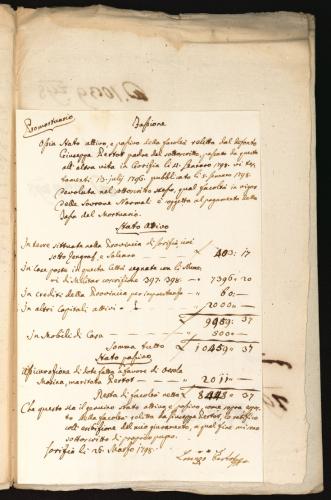 Promortuario
Passione
Ossia Stato attivo, e passivo della facoltà relitta dal defonto
Giuseppe Bertos padre del sottoscritto, passato da questa
all'altra vita in Gorizia li 11. Gennaro 1798. in Tes-
tamenti 13. July 1796. pubblicato li 5. Gennaro 1798.
devoluta nel sottoscritto stesso, qual facoltà in vigor
delle Sovrane Normali è soggetta al pagamento della
Tassa del Mortuario.
Stato attivo
In terre situate nella Provincia di Gorizia, cioè
sotto e Salcano 403: 17
In Case poste in questa Città segnate con li Nume-
ri di Militar coscrizione 397. 398. 7396 20
In crediti della Provincia per imprestanza 60:
In altri Capitali attivi 2000
9959 37
In Mobili di Casa 500
Somma tutto 10459 37
Stato passivo
Assicurazione di dote fatta a favore di Orsola
maritata Bertos 2011
Resta di facoltà netto 8448 37
Che questo sia il genuino Stato attivo, e passivo, come sopra espo-
sto della facoltà relitta da Giuseppe Bertos, lo ratifico
coll'esibizione del mio giuramento, a qual fine mi sono
sottoscritto di proprio pugno.
Gorizia li 26. Marzo 1798.